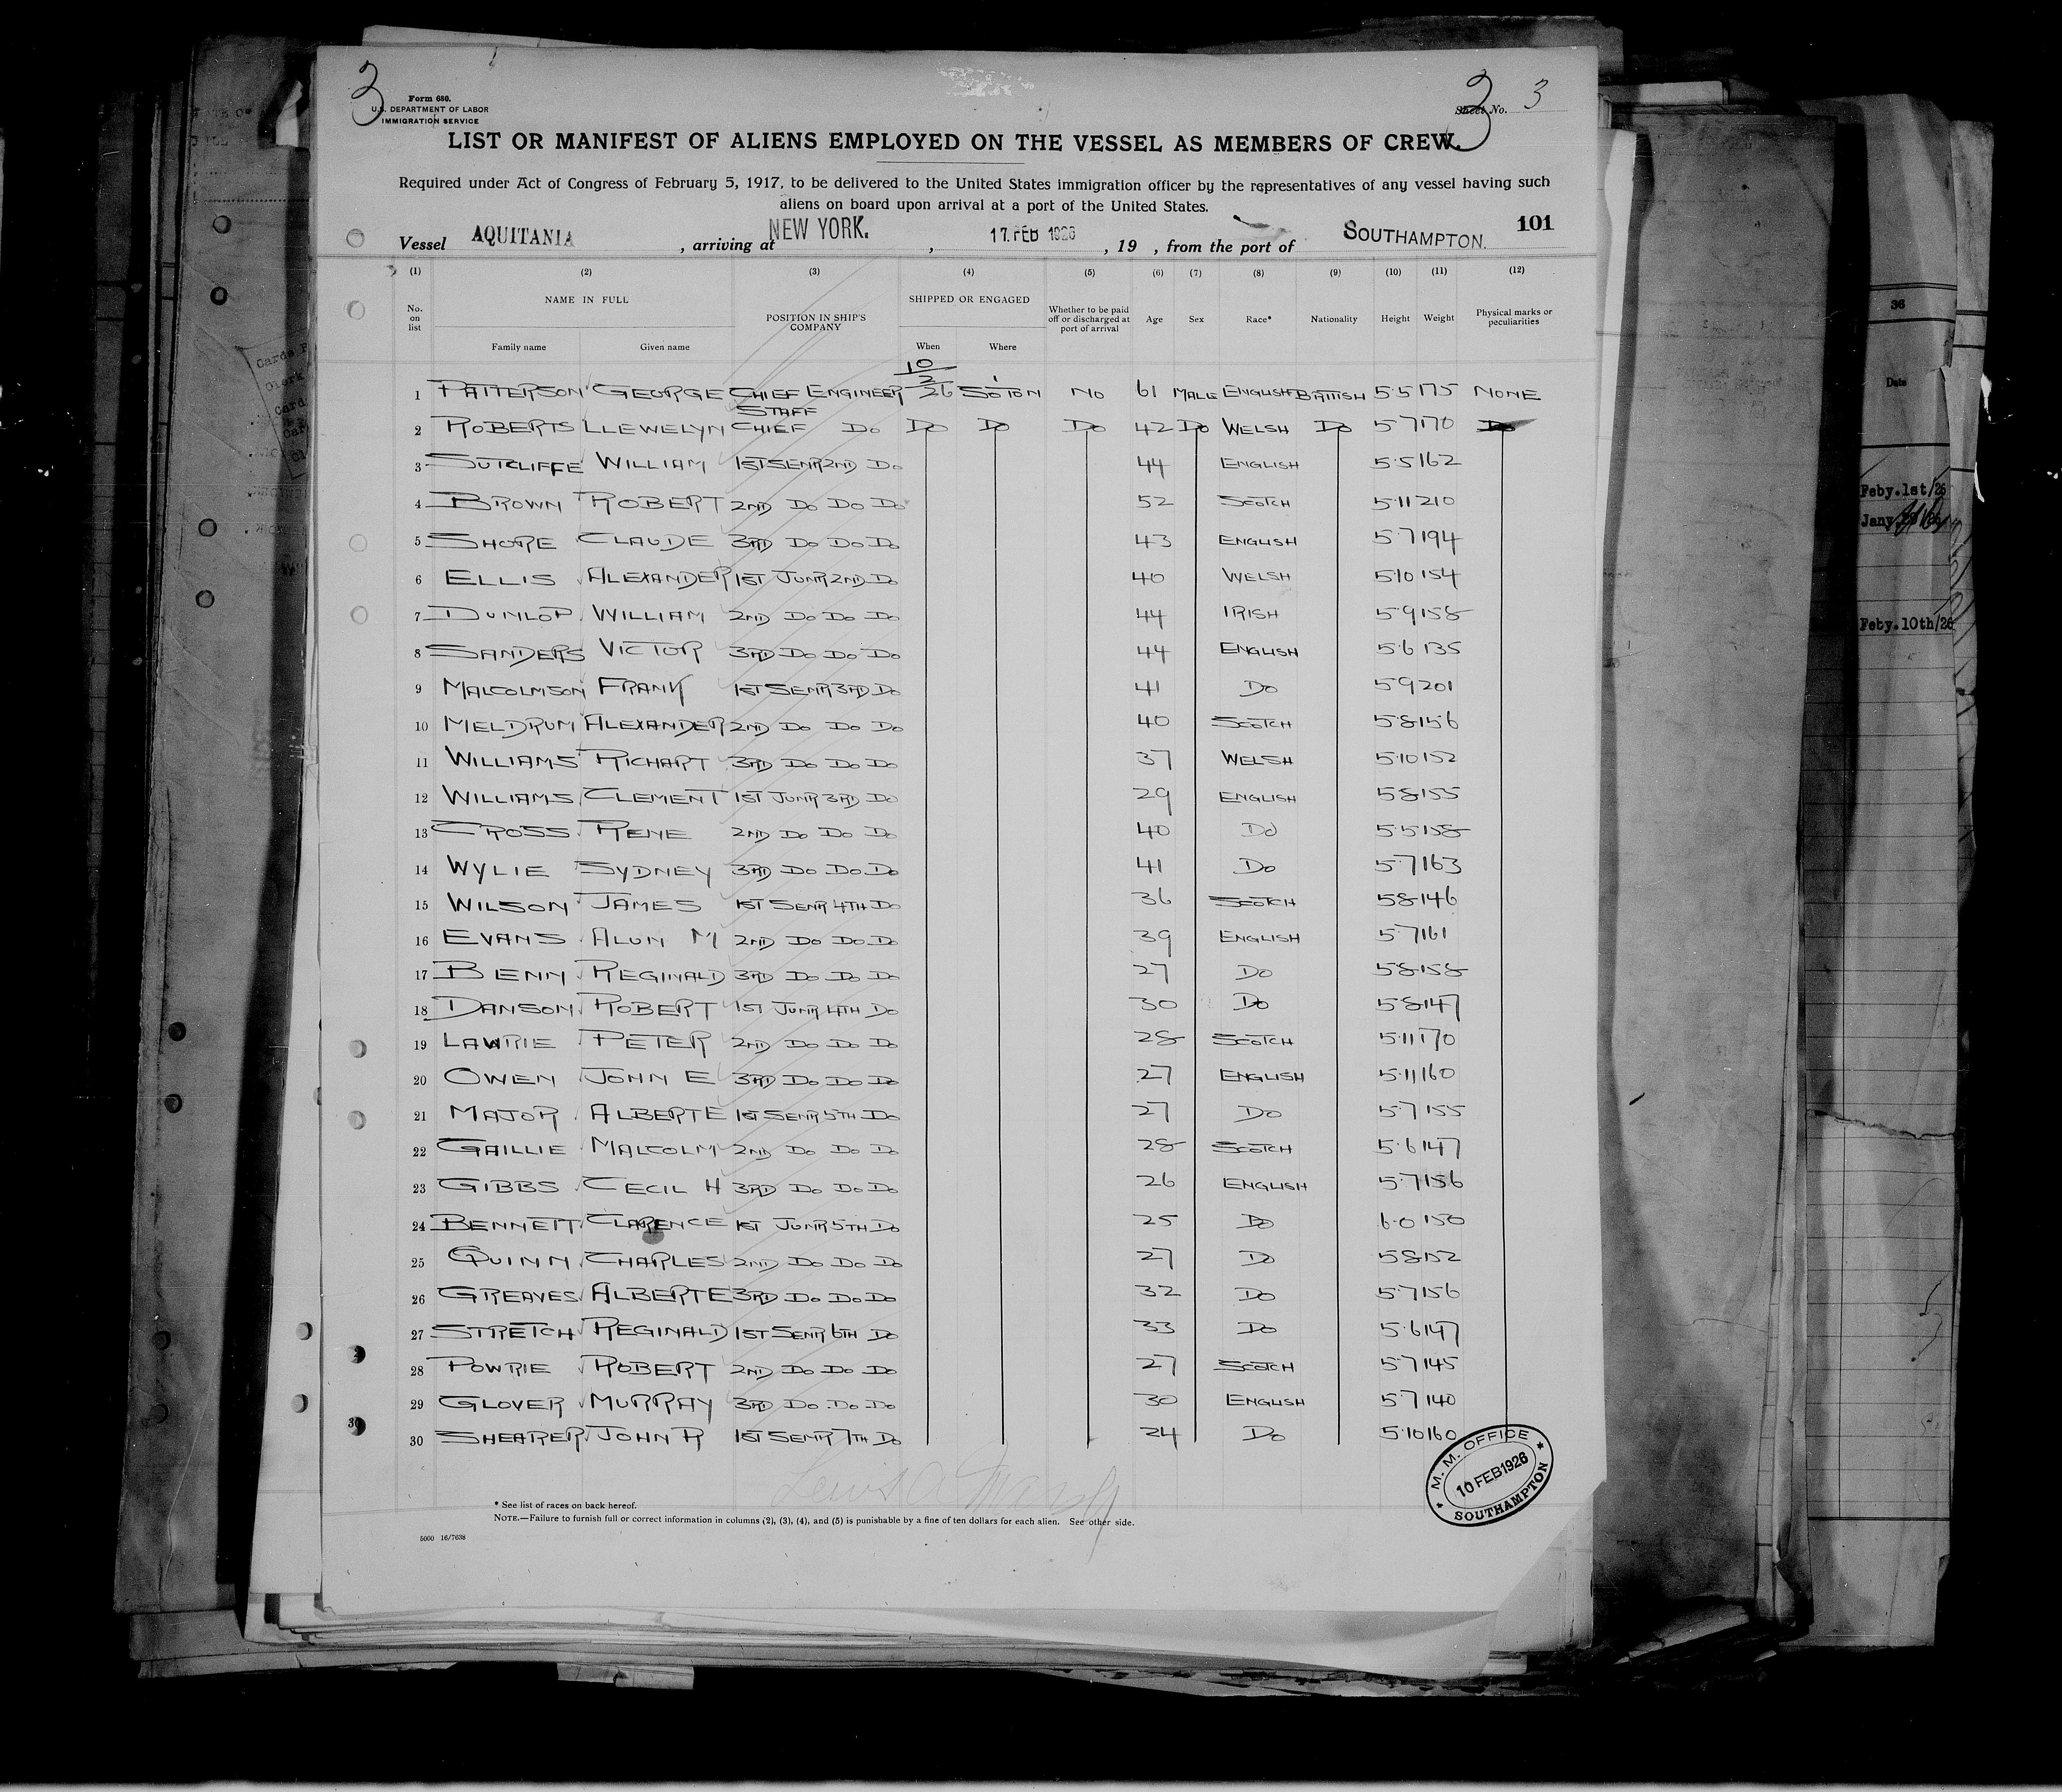 3
3
Form 680.
U.S. DEPARTMENT OF LABOR
IMMIGRATION SERVICE
Sheet No. 3
LIST OR MANIFEST OF ALIENS EMPLOYED ON THE VESSEL AS MEMBERS OF CREW.
Required under Act of Congress of February 5, 1917, to be delivered to the United States immigration officer by the representatives of any vessel having such
aliens on board upon arrival at a port of the United States.
101
Vessel AQUITANIA , arriving at NEW YORK. , 17 FEB 1926 , 19 , from the port of SOUTHAMPTON.
(1) (2) (3) (4) (5) (6) (7) (8) (9) (10) (11) (12)
No. on list NAME IN FULL Family name Given name POSITION IN SHIP'S COMPANY SHIPPED OR ENGAGED When Where Whether to be paid off or discharged at port of arrival Age Sex Race* Nationality Height Weight Physical marks or peculiarities
1 PATTERSON GEORGE CHIEF ENGINEER 10/2/26 SOTON NO 61 MALE ENGLISH BRITISH 5·5 175 NONE
2 ROBERTS LLEWELYN STAFF CHIEF DO DO DO DO 42 DO WELSH DO 5·7 170 DO
3 SUTCLIFFE WILLIAM 1ST SENR 2ND DO 44 ENGLISH 5·5 162
4 BROWN ROBERT 2ND DO DO DO 52 SCOTCH 5·11 210
5 SHORE CLAUDE 3RD DO DO DO 43 ENGLISH 5·7 194
6 ELLIS ALEXANDER 1ST JUNR 2ND DO 40 WELSH 5·10 154
7 DUNLOP WILLIAM 2ND DO DO DO 44 IRISH 5·9 158
8 SANDERS VICTOR 3RD DO DO DO 44 ENGLISH 5·6 135
9 MALCOLMSON FRANK 1ST SENR 3RD DO 41 DO 5·9 201
10 MELDRUM ALEXANDER 2ND DO DO DO 40 SCOTCH 5·8 156
11 WILLIAMS RICHART 3RD DO DO DO 37 WELSH 5·10 152
12 WILLIAMS CLEMENT 1ST JUNR 3RD DO 29 ENGLISH 5·8 155
13 CROSS RENE 2ND DO DO DO 40 DO 5·5 158
14 WYLIE SYDNEY 3RD DO DO DO 41 DO 5·7 163
15 WILSON JAMES 1ST SENR 4TH DO 36 SCOTCH 5·8 146
16 EVANS ALUN M 2ND DO DO DO 39 ENGLISH 5·7 161
17 BENN REGINALD 3RD DO DO DO 27 DO 5·8 158
18 DANSON ROBERT 1ST JUNR 4TH DO 30 DO 5·8 147
19 LAWRIE PETER 2ND DO DO DO 28 SCOTCH 5·11 170
20 OWEN JOHN E 3RD DO DO DO 27 ENGLISH 5·11 160
21 MAJOR ALBERT E 1ST SENR 5TH DO 27 DO 5·7 155
22 GAILLIE MALCOLM 2ND DO DO DO 28 SCOTCH 5·6 147
23 GIBBS CECIL H 3RD DO DO DO 26 ENGLISH 5·7 156
24 BENNETT CLARENCE 1ST JUNR 5TH DO 25 DO 6·0 150
25 QUINN CHARLES 2ND DO DO DO 27 DO 5·8 152
26 GREAVES ALBERT E 3RD DO DO DO 32 DO 5·7 156
27 STRETCH REGINALD 1ST SENR 6TH DO 33 DO 5·6 147
28 POWRIE ROBERT 2ND DO DO DO 27 SCOTCH 5·7 145
29 GLOVER MURRAY 3RD DO DO DO 30 ENGLISH 5·7 140
30 SHEARER JOHN R 1ST SENR 7TH DO 24 DO 5·10 160
M. M. OFFICE
10 FEB 1926
SOUTHAMPTON
* See list of races on back hereof.
NOTE.—Failure to furnish full or correct information in columns (2), (3), (4), and (5) is punishable by a fine of ten dollars for each alien. See other side.
5000 16/7638
36
Date
Feby.1st/26
Feby.10th/26